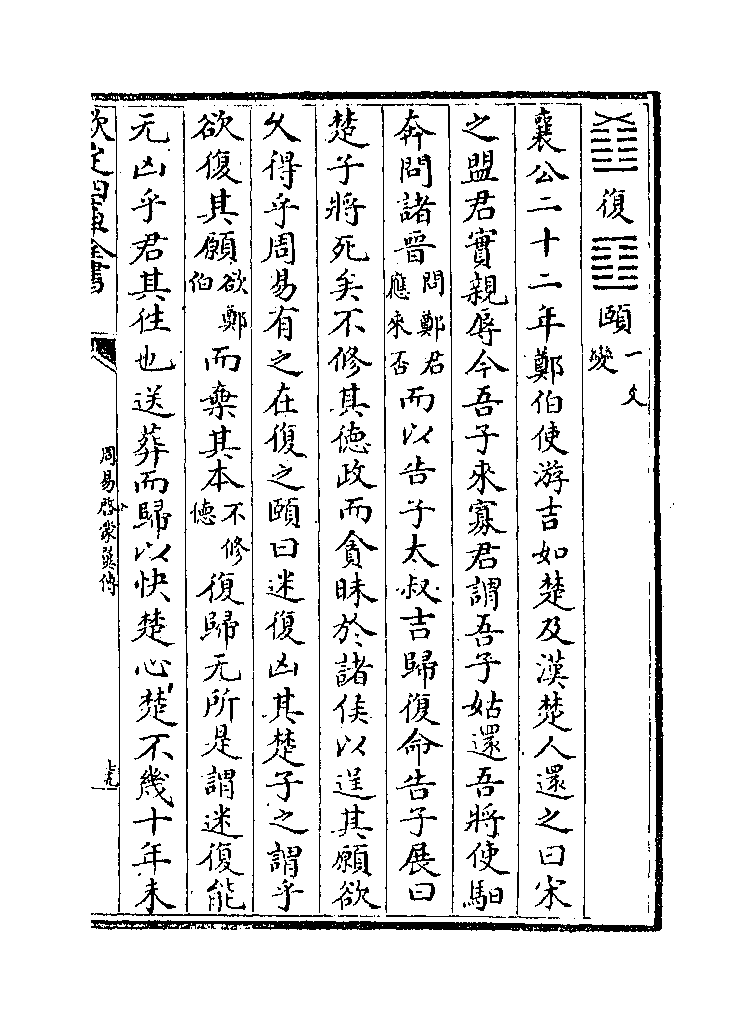 復 頤一爻變
襄公二十二年鄭伯使游吉如楚及漢楚人還之曰宋
之盟君實親辱今吾子來寡君謂吾子姑還吾將使馹
奔問諸晋問鄭君應來否而以告子太叔吉歸復命告子展曰
楚子將死矣不修其德政而貪昧於諸侯以逞其願欲
久得乎周易有之在復之頤曰迷復凶其楚子之謂乎
欲復其願欲鄭伯而棄其本不修德復歸无所是謂迷復能
无凶乎君其徃也送葬而歸以快楚心楚不幾十年未
欽定四庫全書
周易啓蒙翼傳